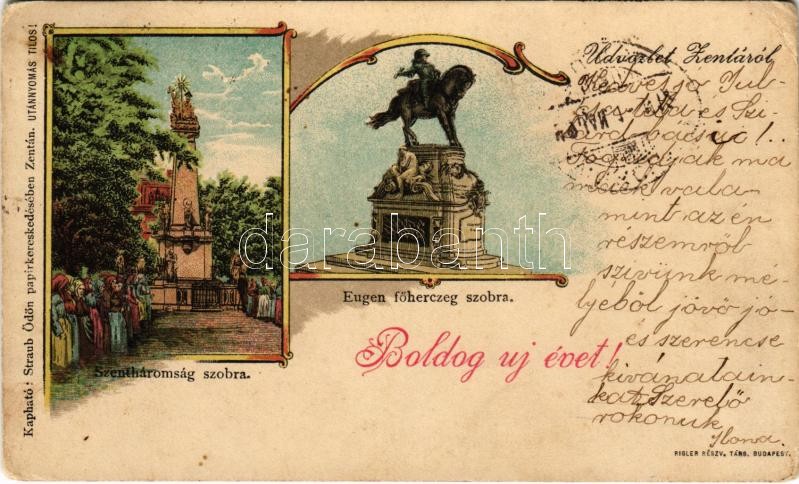 Kapható: Straub Ödön papirkereskedésében Zentán. UTÁNNYOMÁS TILOS!
Üdvözlet Zentáról
Kedves jó Jul-
és Szi-
bácsi!..
Fogadják ma
guk vala-
mint az én
részemről
szivünk mé-
lyéből jövő jó-
és szerencse
kivánatain-
kat Szerető
rokonuk
Ilona.
darabanth
Eugen főherczeg szobra.
Szentháromság szobra.
Boldog uj évet!
RIGLER RÉSZV. TÁRS. BUDAPEST.